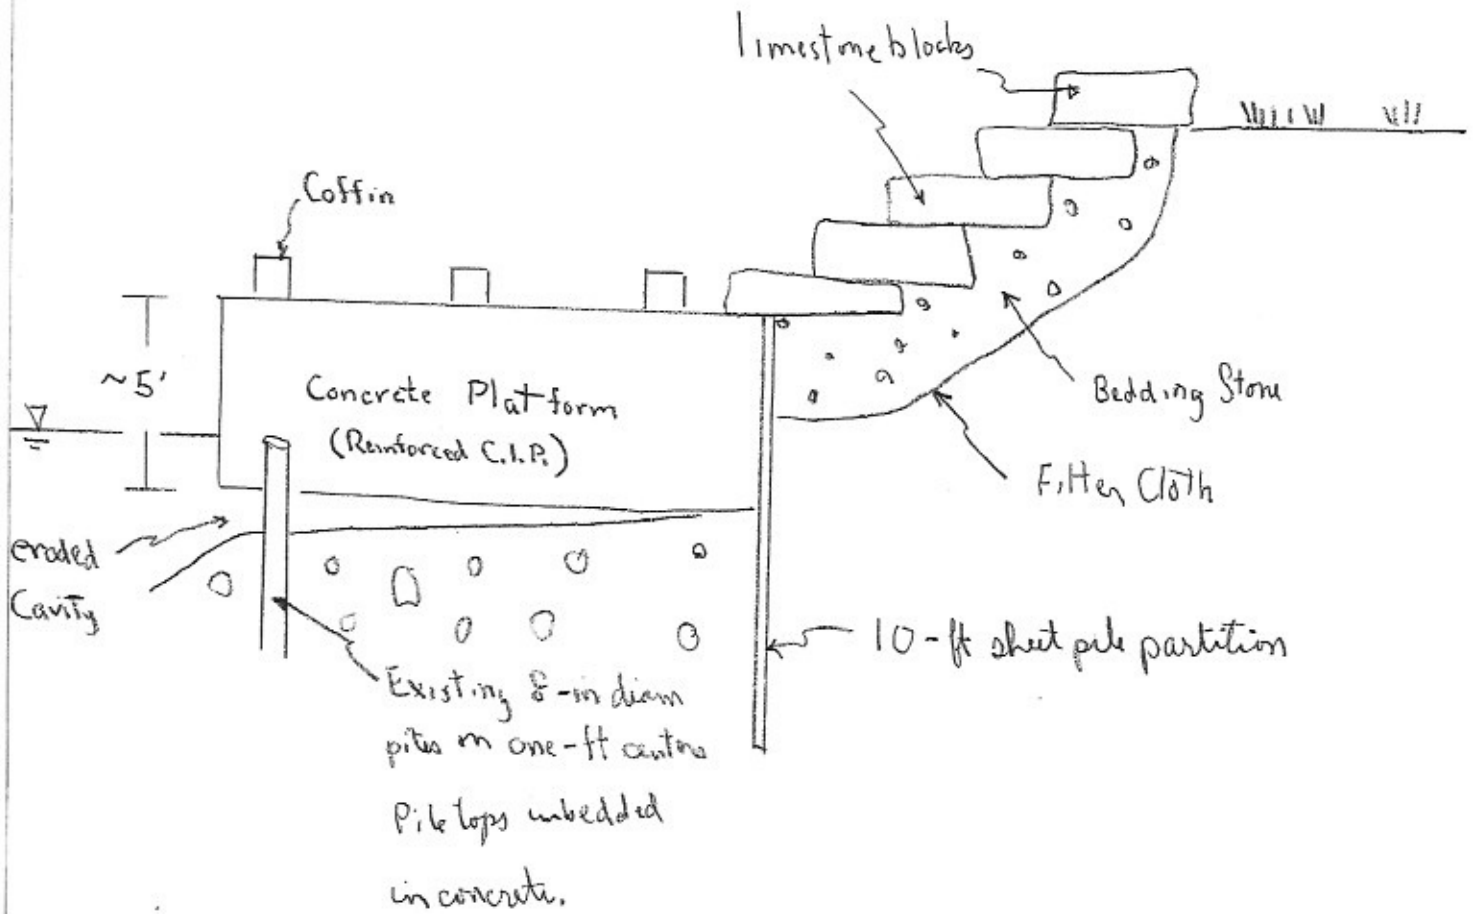 limestone blocks
Coffin
~5'
Concrete Platform
(Reinforced C.I.P.)
Bedding Stone
Filter Cloth
eroded
Cavity
10-ft sheet pile partition
Existing 8-in diam
piles on one-ft centers
Pile tops imbedded
in concrete.